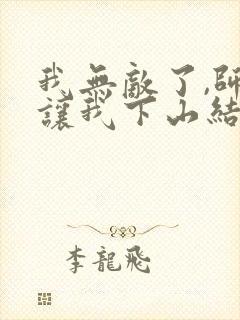 我無敵了,師
讓我下山結
李龍飛